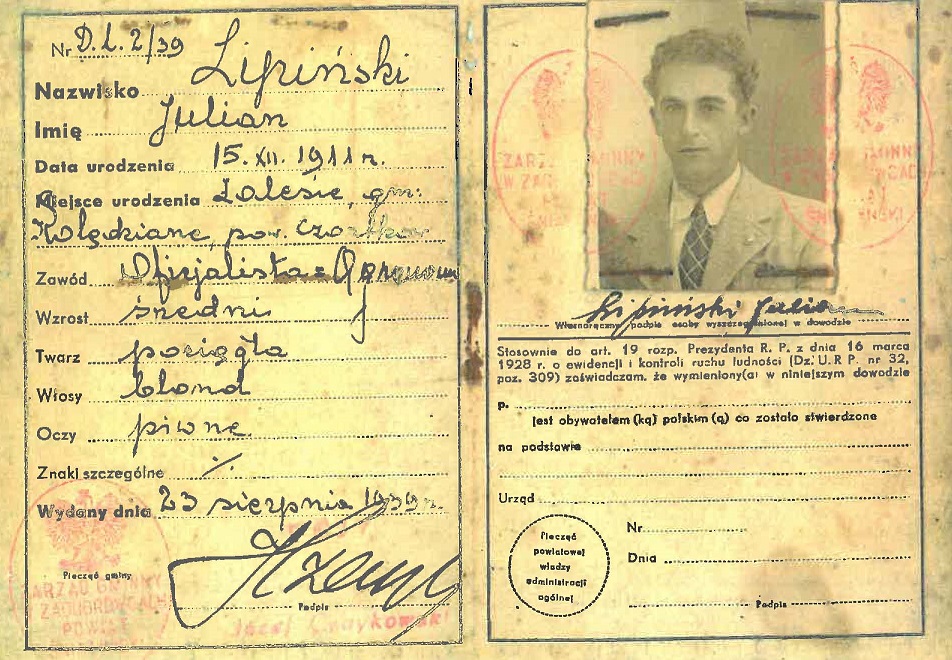 Nr D.L. 2/39
Nazwisko Lipiński
Imię Julian
Data urodzenia 15.XII.1911 r.
Miejsce urodzenia Zalesie, gm:
Kolędziane, pow. Czortków
Zawód Oficjalista
Wzrost średni
Twarz pociągła
Włosy blond
Oczy piwne
Znaki szczególne ./.
Wydany dnia 23 sierpnia 1939 r.
Pieczęć gminy
ZARZĄD GMINY
POWIAT
Podpis
Lipiński Julian
Własnoręczny podpis osoby wyszczególnionej w dowodzie
Stosownie do art. 19 rozp. Prezydenta R. P. z dnia 16 marca
1928 r. o ewidencji i kontroli ruchu ludności (Dz. U. R P. nr 32,
poz. 309) zaświadczam, że wymieniony(a) w niniejszym dowodzie
p.
jest obywatelem (ką) polskim (ą) co zostało stwierdzone
na podstawie
Urząd
Pieczęć
powiatowej
władzy
administracji
ogólnej
Nr
Dnia
Podpis